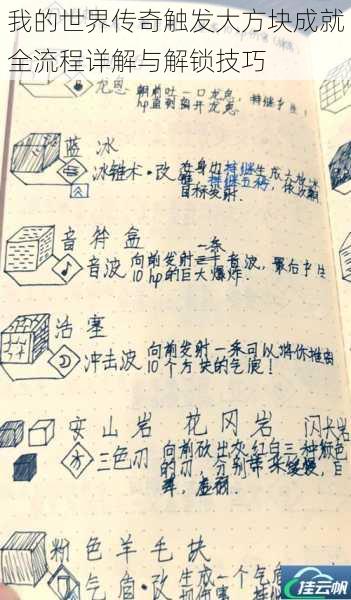 我的世界传奇触发大方块成就
全流程详解与解锁技巧
龙息 朝前吐一口龙息,
蓝冰
冰锥术·改 在身边持续生成大块冰
锥,持续五秒,依次朝
目标发射.
音符盒
一条
音波 向前发射音波,最后产生
10hp的巨大爆炸.
活塞
冲击波 向前发射一条可以将你推出
10个方块的气盾!
安山岩 花冈岩 闪长岩
三色刃 向前砍出灰红白三种颜色
的刃,分别带来缓慢,
虚弱.
粉色羊毛块
气盾·改 生成一个气盾
挂云帆